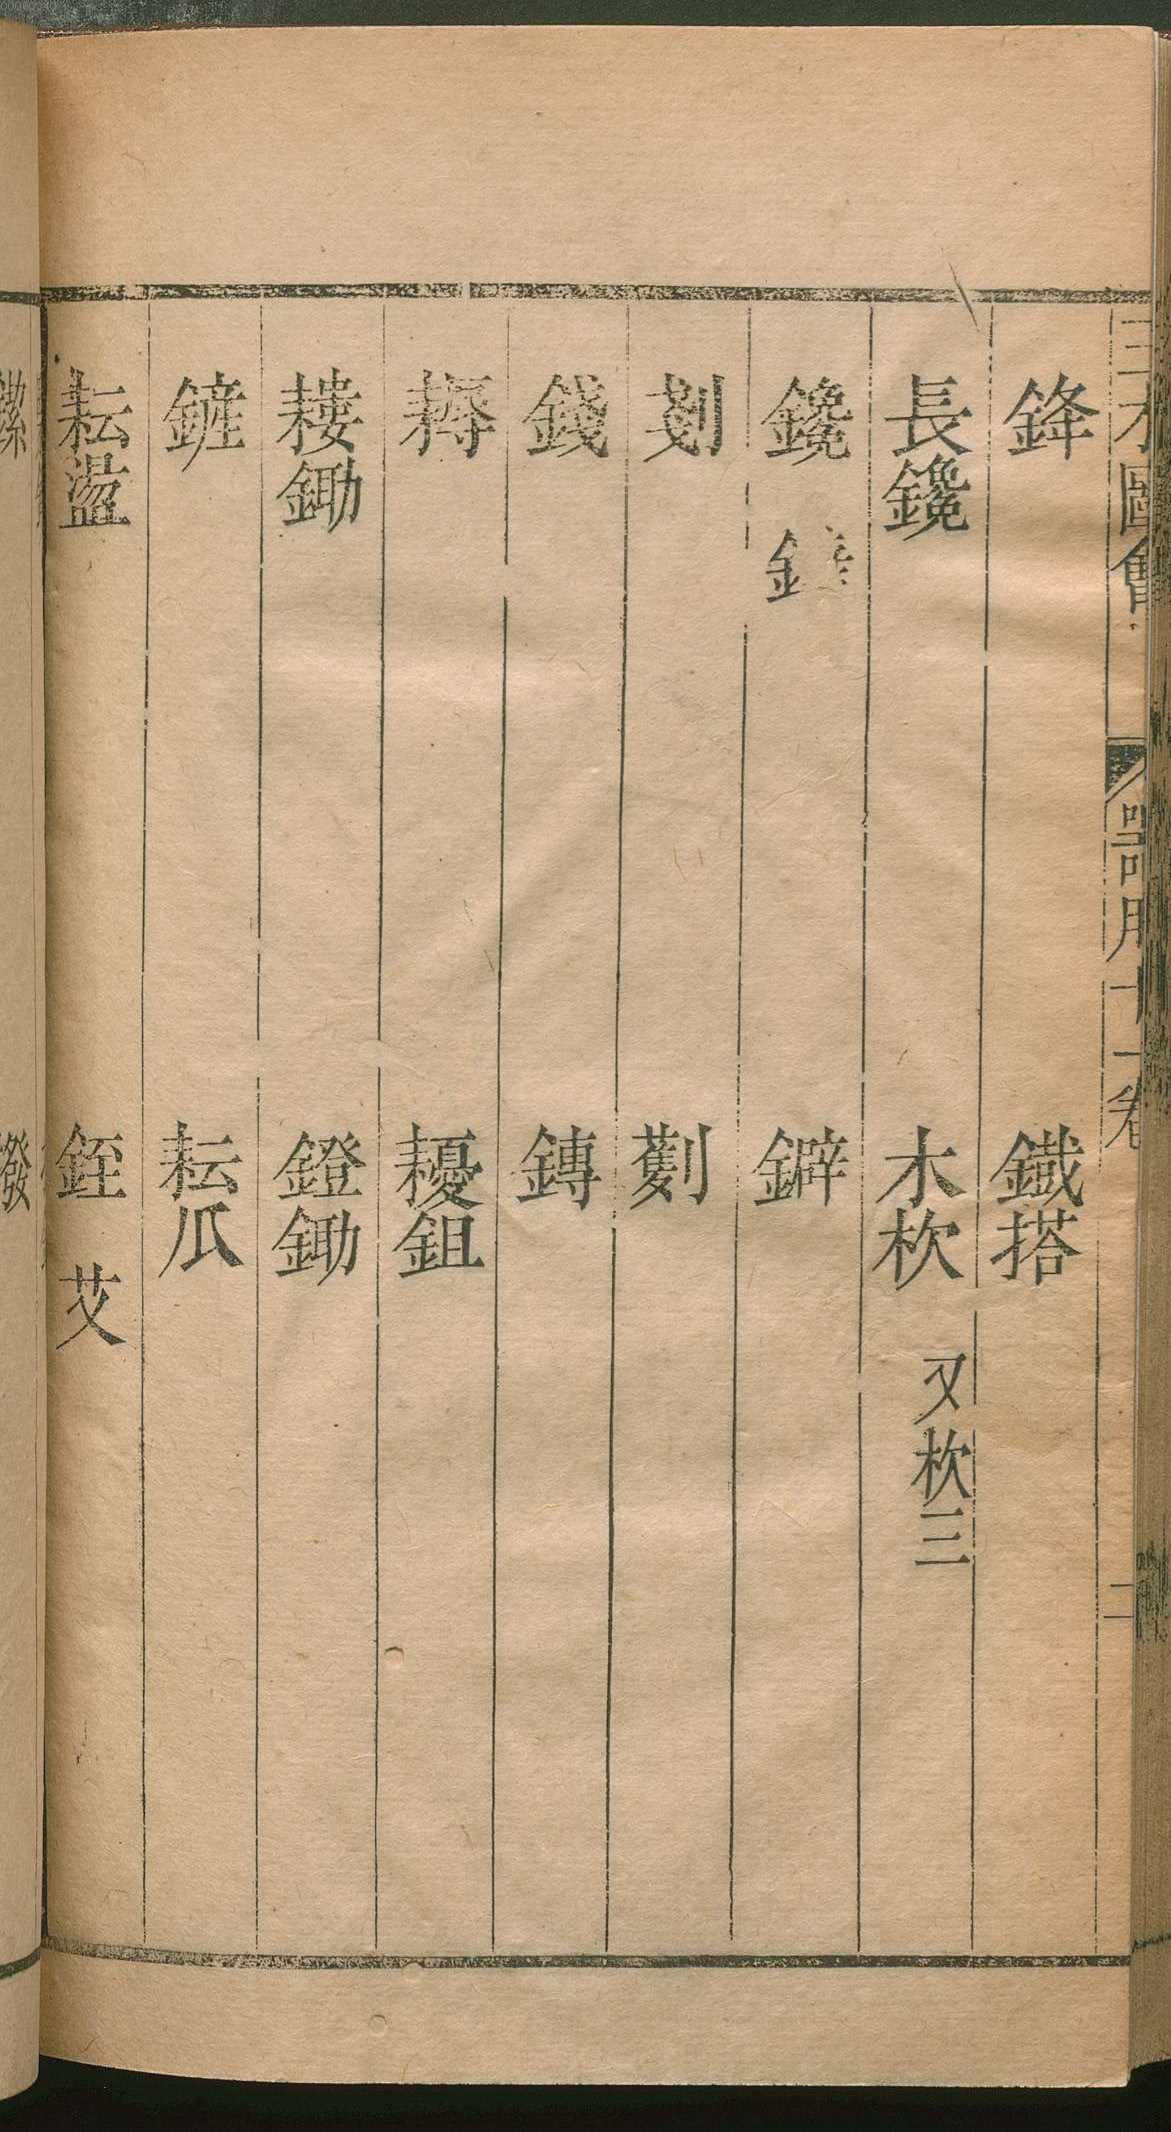 三才圖會 器用十一卷 二
鋒 鐵搭
長鑱 木杴 又杴三
鑱 鐴
剗 劐
錢 鎛
耨 耰鉏
耬鋤 鐙鋤
鏟 耘瓜
耘盪 銍 艾